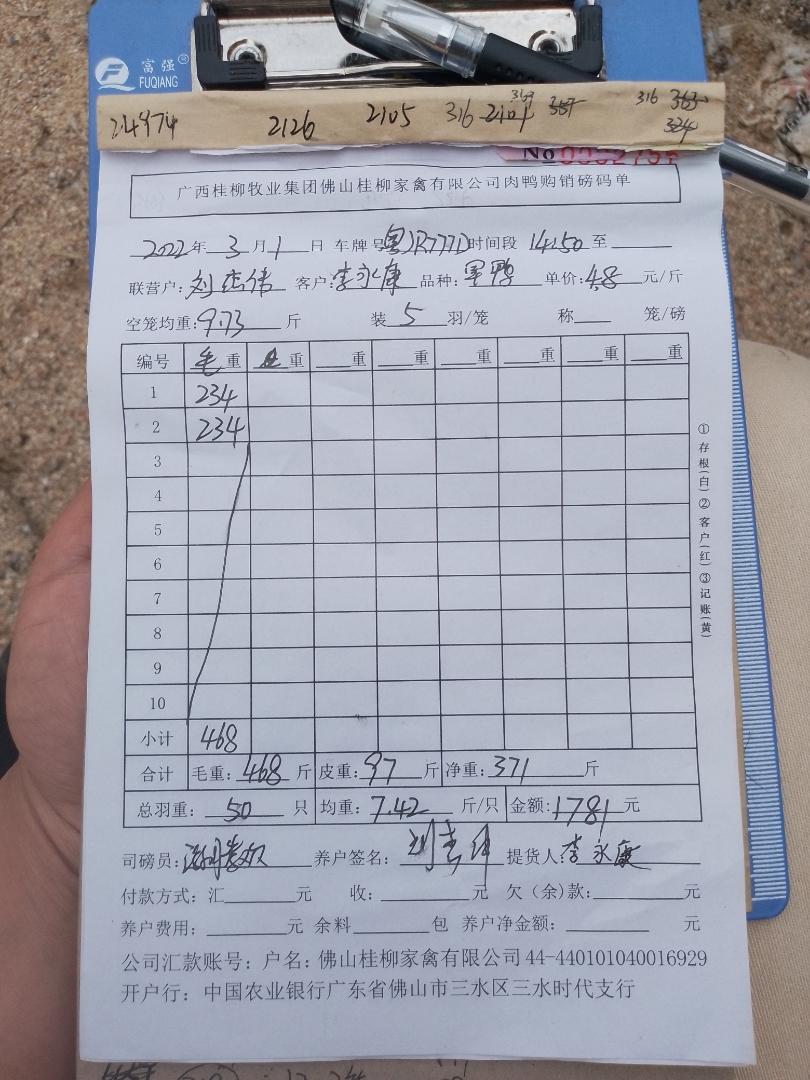 富强®
FUQIANG
24974 2126 2105 316 2104 363 387 316 363 324
No
广西桂柳牧业集团佛山桂柳家禽有限公司肉鸭购销磅码单
2022年 3 月 1 日 车牌号粤JR777D时间段 14:50 至
联营户: 客户:李永康 品种: 单价:4.8 元/斤
空笼均重:9.73 斤 装 5 羽/笼 称 笼/磅
编号 毛重 重 重 重 重 重 重 重
1 234
2 234
3
4
5
6
7
8
9
10
小计 468
合计 毛重:468 斤 皮重:97 斤 净重:371 斤
总羽重: 50 只 均重:7.42 斤/只 金额:1781 元
司磅员: 养户签名: 提货人:李永康
付款方式:汇 元 收: 元 欠(余)款: 元
养户费用: 元 余料 包 养户净金额: 元
公司汇款账号:户名:佛山桂柳家禽有限公司 44-440101040016929
开户行:中国农业银行广东省佛山市三水区三水时代支行
①存根(白)②客户(红)③记账(黄)